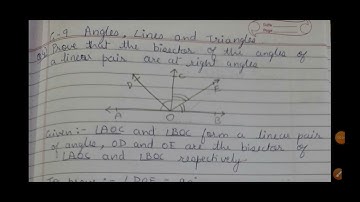 C-9 Angles, Lines and Triangles
Prove that the bisector of the angles of
a linear pair are at right angles
C
D
E
A
O
B
Given:- ∠AOC and ∠BOC form a linear pair
of angles, OD and OE are the bisector of
∠AOC and ∠BOC respectively
To prove:- ∠DOE =